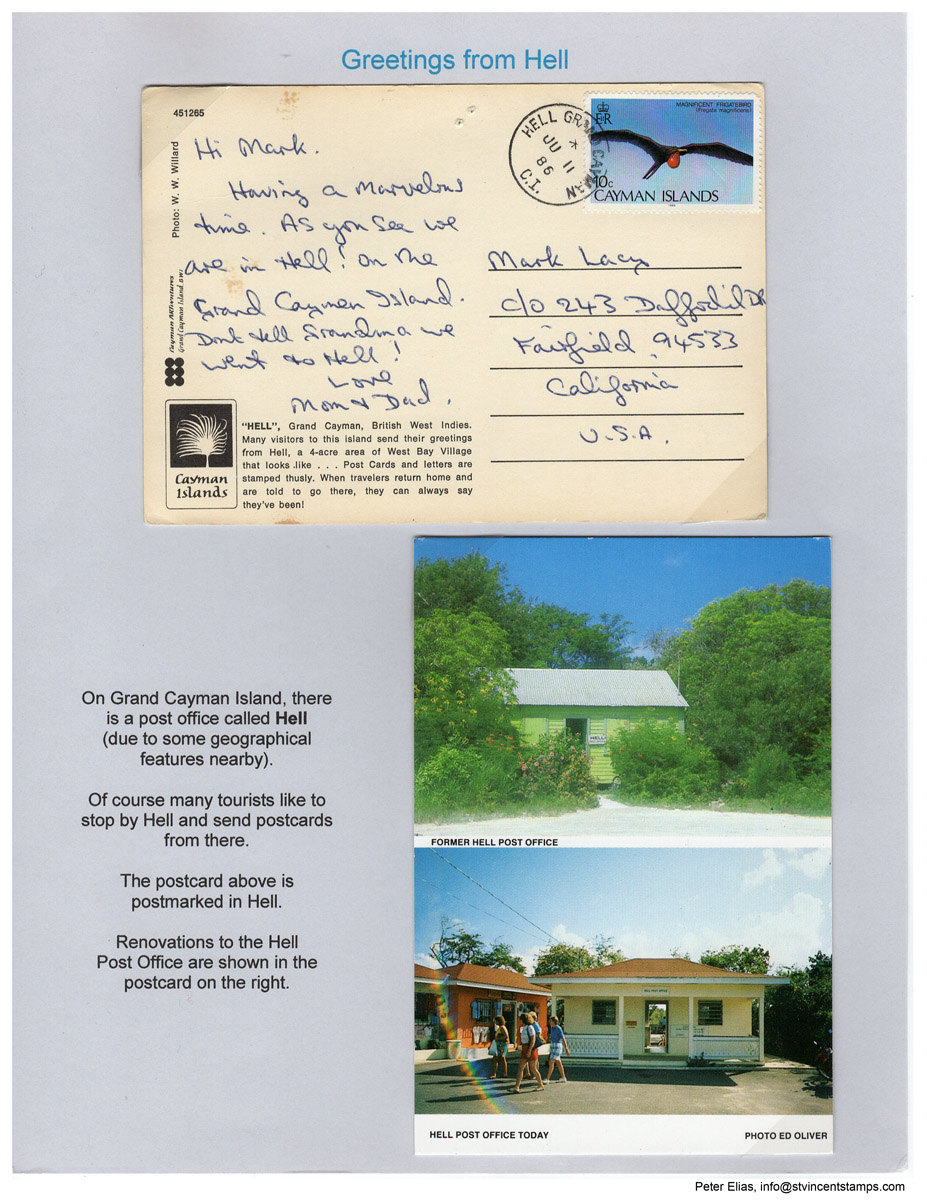 Greetings from Hell
451265
Photo: W. W. Willard
Cayman ARTventures
Grand Cayman Island BWI
Hi Mark.
Having a Marvelous
time. As you See we
are in Hell! on the
Grand Caymen Island.
Dont tell Grandma we
went to Hell!
Love
Mom & Dad.
HELL GRAND CAYMAN
JU 11
86
C.I.
MAGNIFICENT FRIGATEBIRD
(Fregata magnificens)
E R
10c
CAYMAN ISLANDS
Mark Lacy
c/o 243 Daffodil DR
Fairfield, 94533
California
U.S.A.
Cayman
Islands
"HELL", Grand Cayman, British West Indies.
Many visitors to this island send their greetings
from Hell, a 4-acre area of West Bay Village
that looks like . . . Post Cards and letters are
stamped thusly. When travelers return home and
are told to go there, they can always say
they've been!
On Grand Cayman Island, there
is a post office called Hell
(due to some geographical
features nearby).
Of course many tourists like to
stop by Hell and send postcards
from there.
The postcard above is
postmarked in Hell.
Renovations to the Hell
Post Office are shown in the
postcard on the right.
HELL
FORMER HELL POST OFFICE
HELL POST OFFICE
HELL POST OFFICE TODAY
PHOTO ED OLIVER
Peter Elias, info@stvincentstamps.com